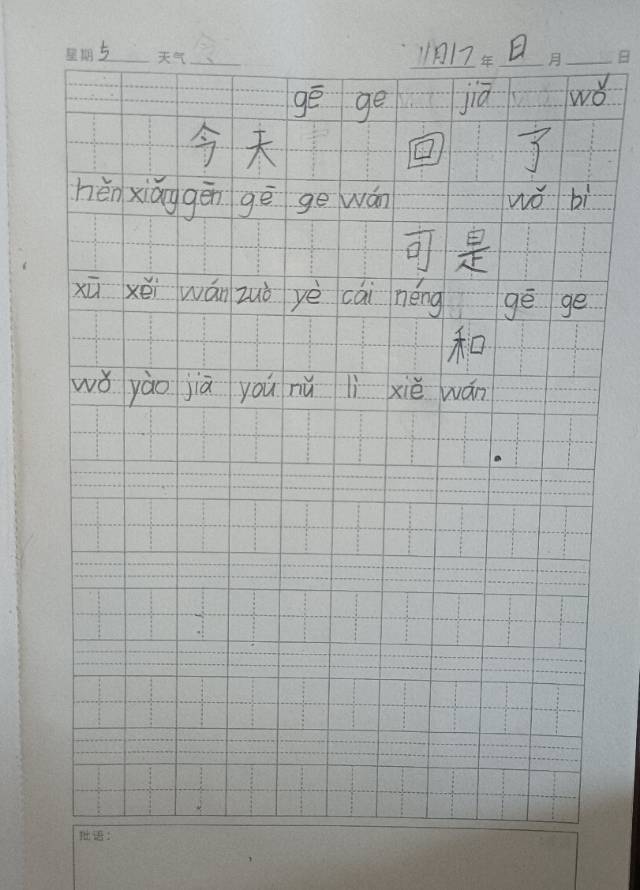 星期 5 天气 11月17 年 日 月 日
gē ge jiā wǒ
今 天 回 了
hěn xiǎng gēn gē ge wán wǒ bì
可 是
xū xěi wán zuò yè cái néng gē ge
和
wǒ yào jiā yoú nǔ lì xiě wán
.
批语: